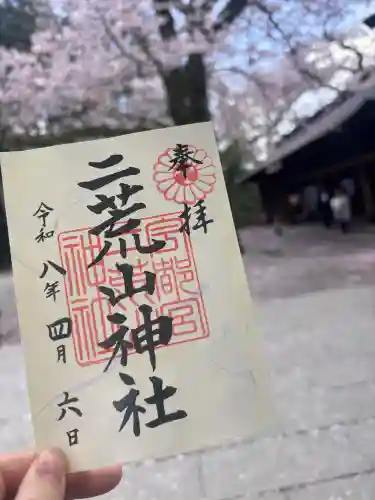 奉拝
二荒山神社
宇都宮
二荒山
神社
令和八年四月六日